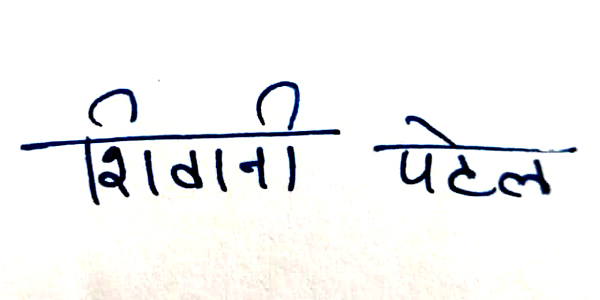 शिवानी पटेल